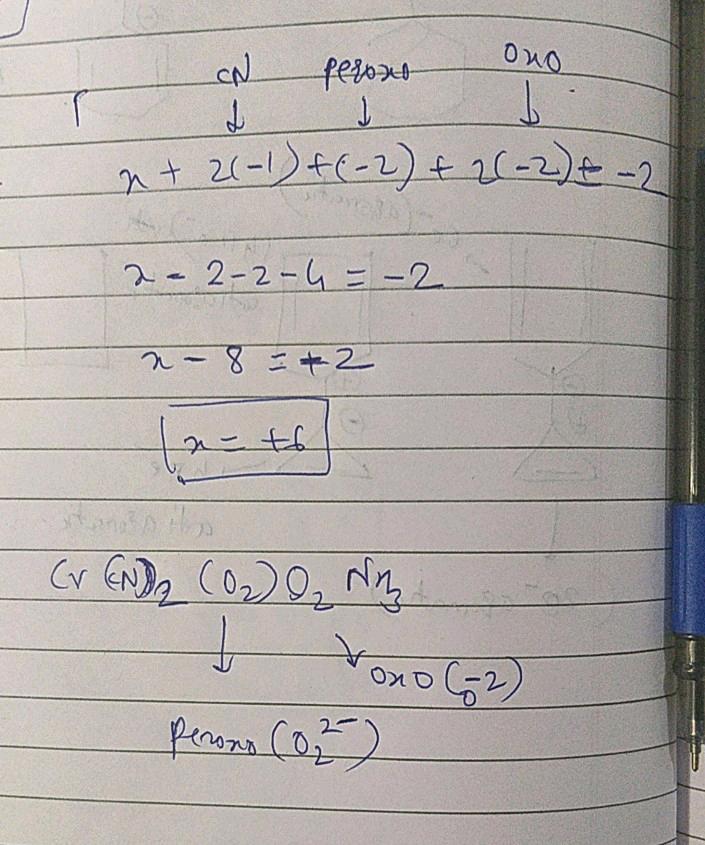 CN peroxo oxo
↓ ↓ ↓
x + 2(-1) + (-2) + 2(-2) = -2
x - 2 - 2 - 4 = -2
x - 8 = -2
x = +6
Cr (CN)2 (O2) O2 NH3
↓ ↘ oxo (O-2)
peroxo (O2 2-)